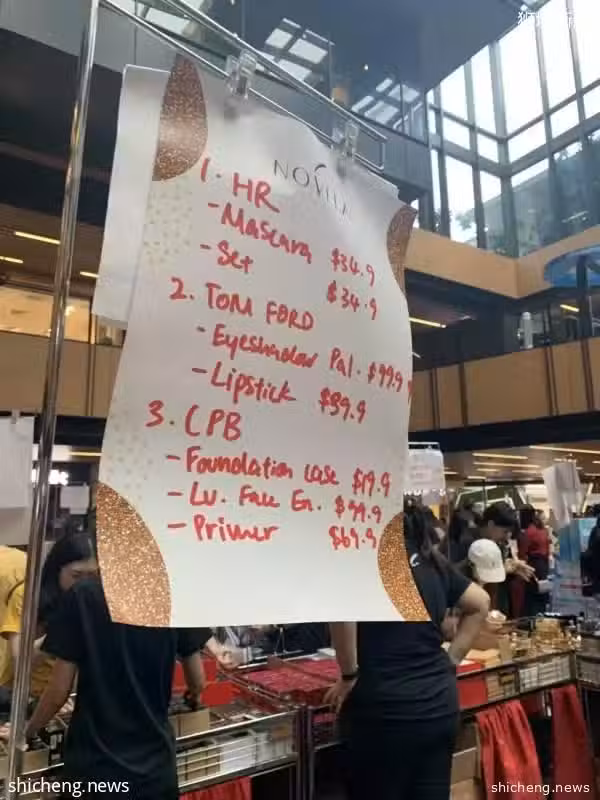 NOVELA
1. HR
- Mascara $34.9
- Set $34.9
2. TOM FORD
- Eyeshadow Pal. $99.9
- Lipstick $39.9
3. CPB
- Foundation case $19.9
- Lu. Face En. $99.9
- Primer $69.9
shicheng.news
shicheng.news